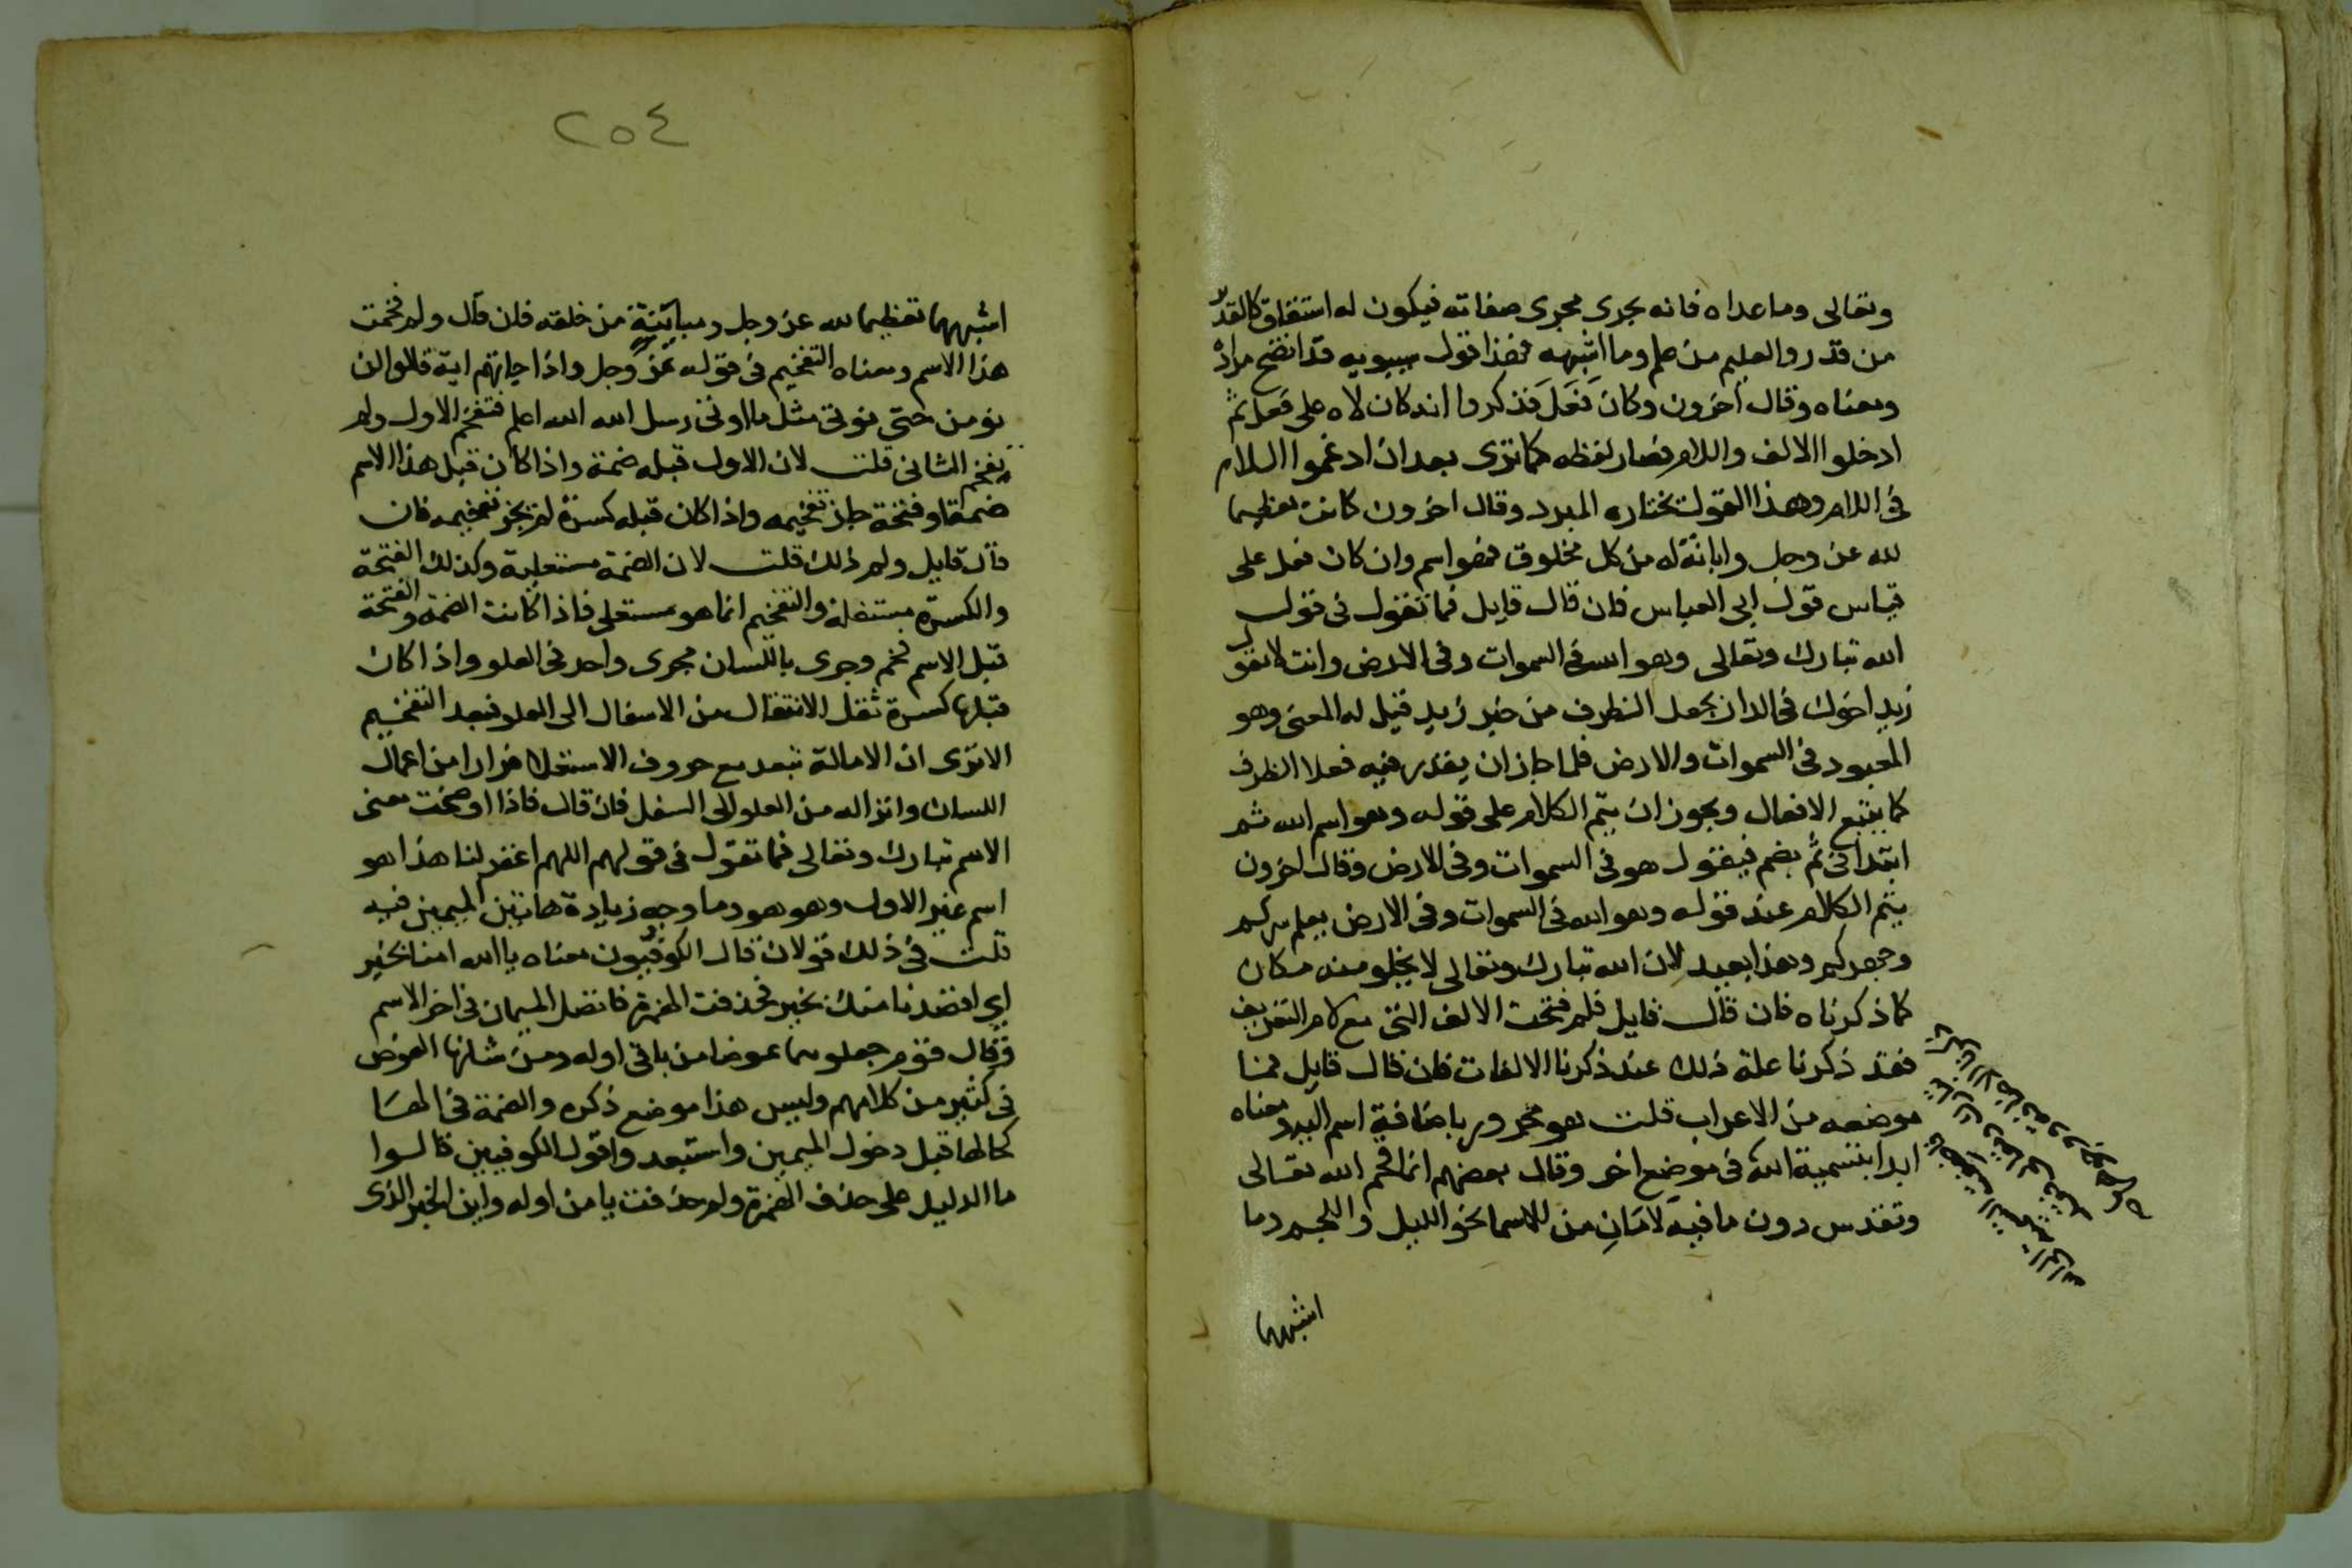 وتعالى وما عداه فانه يجرى مجرى صفاته فيكون له اشتقاق كالقدير
من قدر والعليم من علم وما اشبهه فهذا قول سيبويه قد اتضح مراده
ومعناه وقال اخرون وكان فَعَلَ فذكروا انه كان لاه على فعل ثم
ادخلوا الالف واللام فصار لفظه كما ترى بعد ان ادغموا اللام
فى اللام وهذا القول يختاره المبرد وقال اخرون كانت تعظيما
لله عز وجل وابانة له من كل مخلوق فهو اسم وان كان فعل على
قياس قول ابى العباس فان قال قايل فما تقول فى قول
الله تبارك وتعالى وهو الله فى السموات وفى الارض وانت لا تقول
زيد اخوك فى الدار بجعل الظرف من خبر زيد قيل له المعنى وهو
المعبود فى السموات والارض فلما جاز ان يقدر فيه فعلا الظرف
كما يتبع الافعال ويجوز ان يتم الكلام على قوله وهو اسم الله ثم
ابتدا فى ثم يضم فيقول هو فى السموات وفى الارض وقال اخرون
يتم الكلام عند قوله وهو الله فى السموات وفى الارض يعلم سركم
وجهركم وهذا بعيد لان الله تبارك وتعالى لا يخلو منه مكان
كما ذكرناه فان قال قايل فلم فتحت الالف التى مع لام التعريف
فقد ذكرنا علة ذلك عند ذكرنا الالفات فان قال قايل فما
موضعه من الاعراب قلت هو مجرور باضافة اسم اليه ومعناه
ابدا بتسمية الله فى موضع اخر وقال بعضهم انما فخم الله تعالى
وتقدس دون ما فيه لامَانِ من الاسما نحو الليل واللجم وما
اشبهها
٢٥٤
اشبهها تعظيما لله عز وجل ومباينة من خلقه فان قال ولم فخمت
هذا الاسم ومعناه التفخيم فى قوله عز وجل واذا جاتهم اية قالوا لن
نومن حتى نوتى مثل ما اوتى رسل الله الله اعلم فتفخم الاول ولم
يفخم الثانى قلت لان الاول قبله ضمة واذا كان قبل هذا الاسم
ضمة او فتحة جاز تفخيمه واذا كان قبله كسرة لم يجز تفخيمه فان
قال قايل ولم ذلك قلت لان الضمة مستعلية وكذلك الفتحة
والكسرة مستفلة والتفخيم انما هو مستعلى فاذا كانت الضمة والفتحة
قبل الاسم فخم وجرى باللسان مجرى واحد فى العلو واذا كان
قبلها كسرة ثقل الانتقال من الاسفال الى العلو فبعد التفخيم
الا ترى ان الامالة تبعد مع حروف الاستعلا فرارا من اعمال
اللسان وانزاله من العلو الى السفل فان قال فاذا اوضحت معنى
الاسم تبارك وتعالى فما تقول فى قولهم اللهم اغفر لنا هذا هو
اسم غير الاول وهو هو وما وجه زيادة هاتين الميمين فيه
قلت فى ذلك قولان قال الكوفيون معناه يا الله امنا بخير
اي اقصدنا منك بخير فحذفت الهمزة فاتصل الميمان فى اخر الاسم
وقال قوم جعلوهما عوضا من ياء فى اوله ومن شانها العوض
فى كثير من كلامهم وليس هذا موضع ذكره والضمة فى الهسا
كحالها قبل دخول الميمين واستبعدوا قول الكوفيين قالوا
ما الدليل على حذف الهمزة ولم حذفت يا من اوله واين الخبر الذى